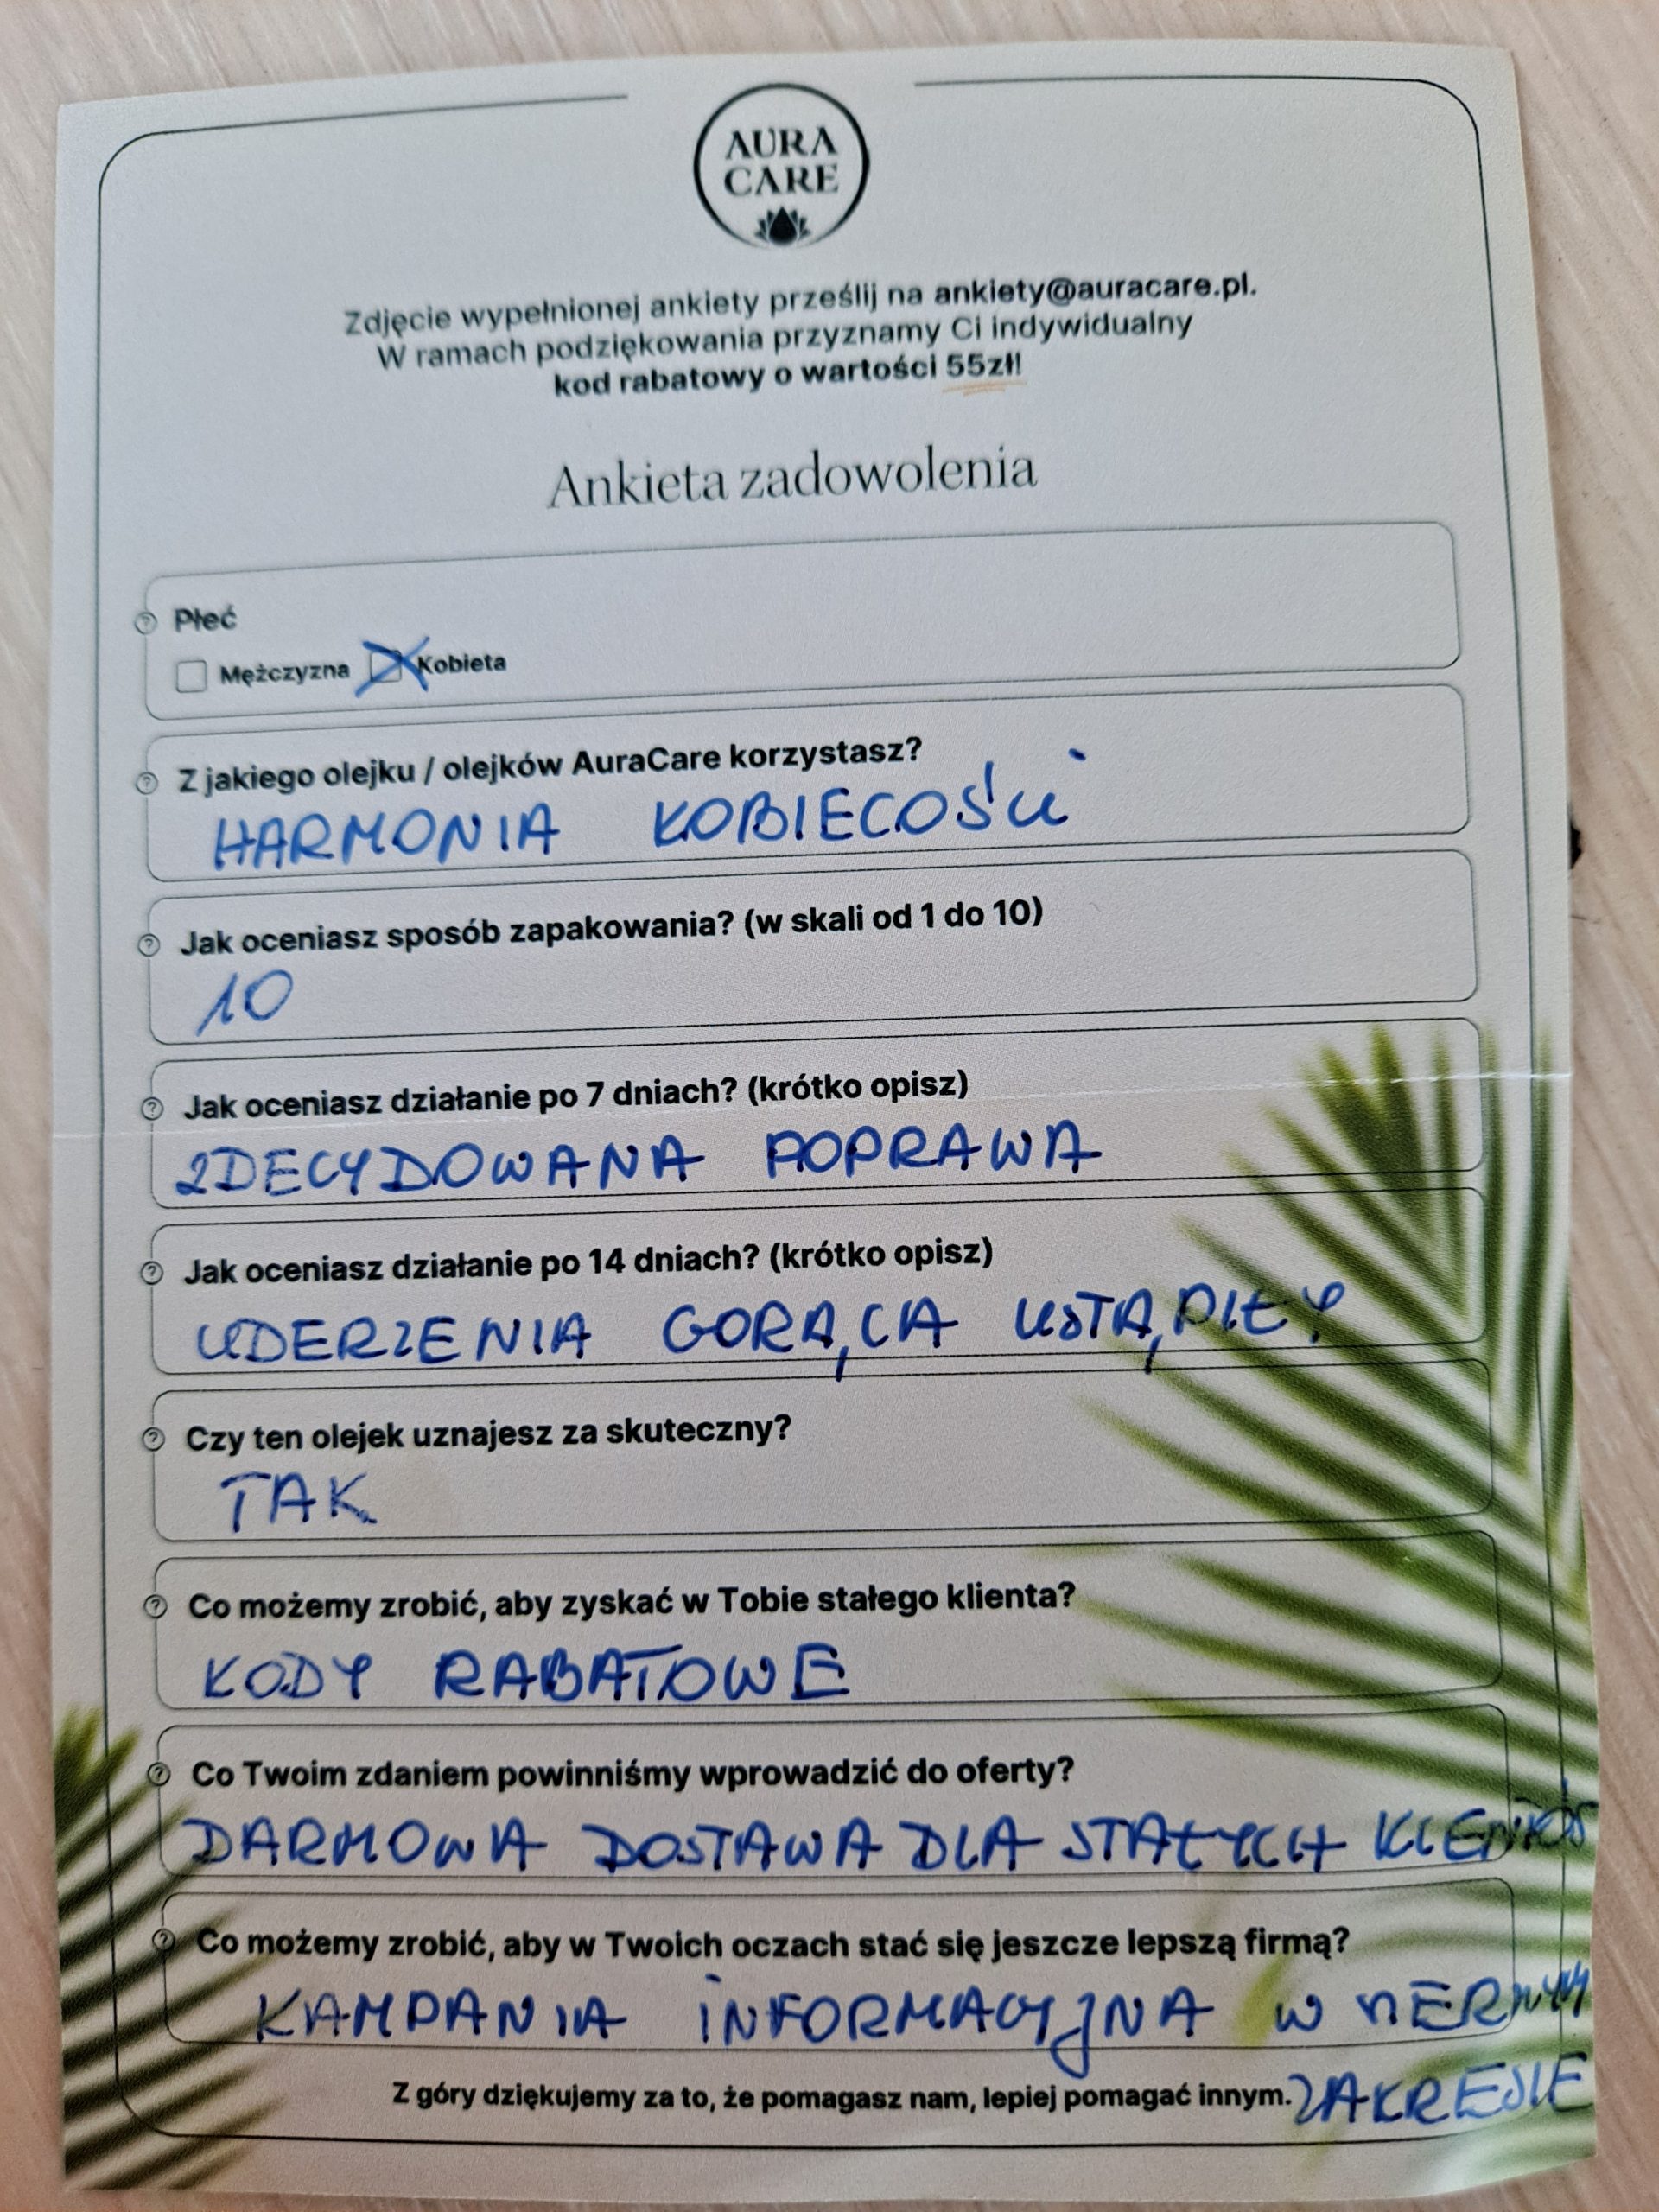 AURA
CARE
Zdjęcie wypełnionej ankiety prześlij na ankiety@auracare.pl.
W ramach podziękowania przyznamy Ci indywidualny
kod rabatowy o wartości 55zł!
Ankieta zadowolenia
Płeć
Mężczyzna Kobieta
Z jakiego olejku / olejków AuraCare korzystasz?
HARMONIA KOBIECOŚCI
Jak oceniasz sposób zapakowania? (w skali od 1 do 10)
10
Jak oceniasz działanie po 7 dniach? (krótko opisz)
ZDECYDOWANA POPRAWA
Jak oceniasz działanie po 14 dniach? (krótko opisz)
UDERZENIA GORĄCA USTĄPIŁY
Czy ten olejek uznajesz za skuteczny?
TAK
Co możemy zrobić, aby zyskać w Tobie stałego klienta?
KODY RABATOWE
Co Twoim zdaniem powinniśmy wprowadzić do oferty?
DARMOWA DOSTAWA DLA STAŁYCH
Co możemy zrobić, aby w Twoich oczach stać się jeszcze lepszą firmą?
KAMPANIA INFORMACYJNA W
Z góry dziękujemy za to, że pomagasz nam, lepiej pomagać innym. ZAKRESIE